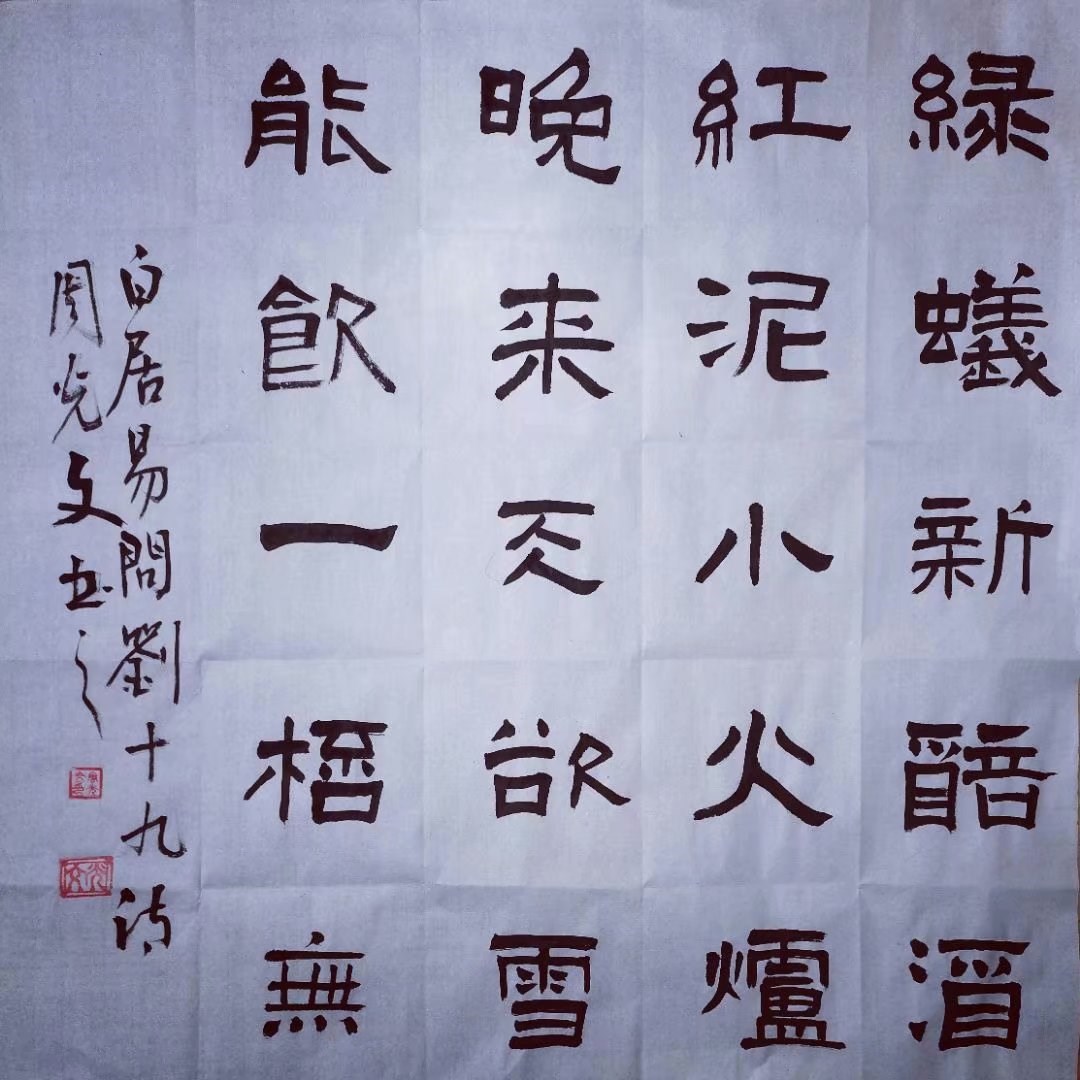 緑蟻新醅酒
紅泥小火爐
晚来天欲雪
能飲一桮無
白居易問劉十九詩
周光文书之